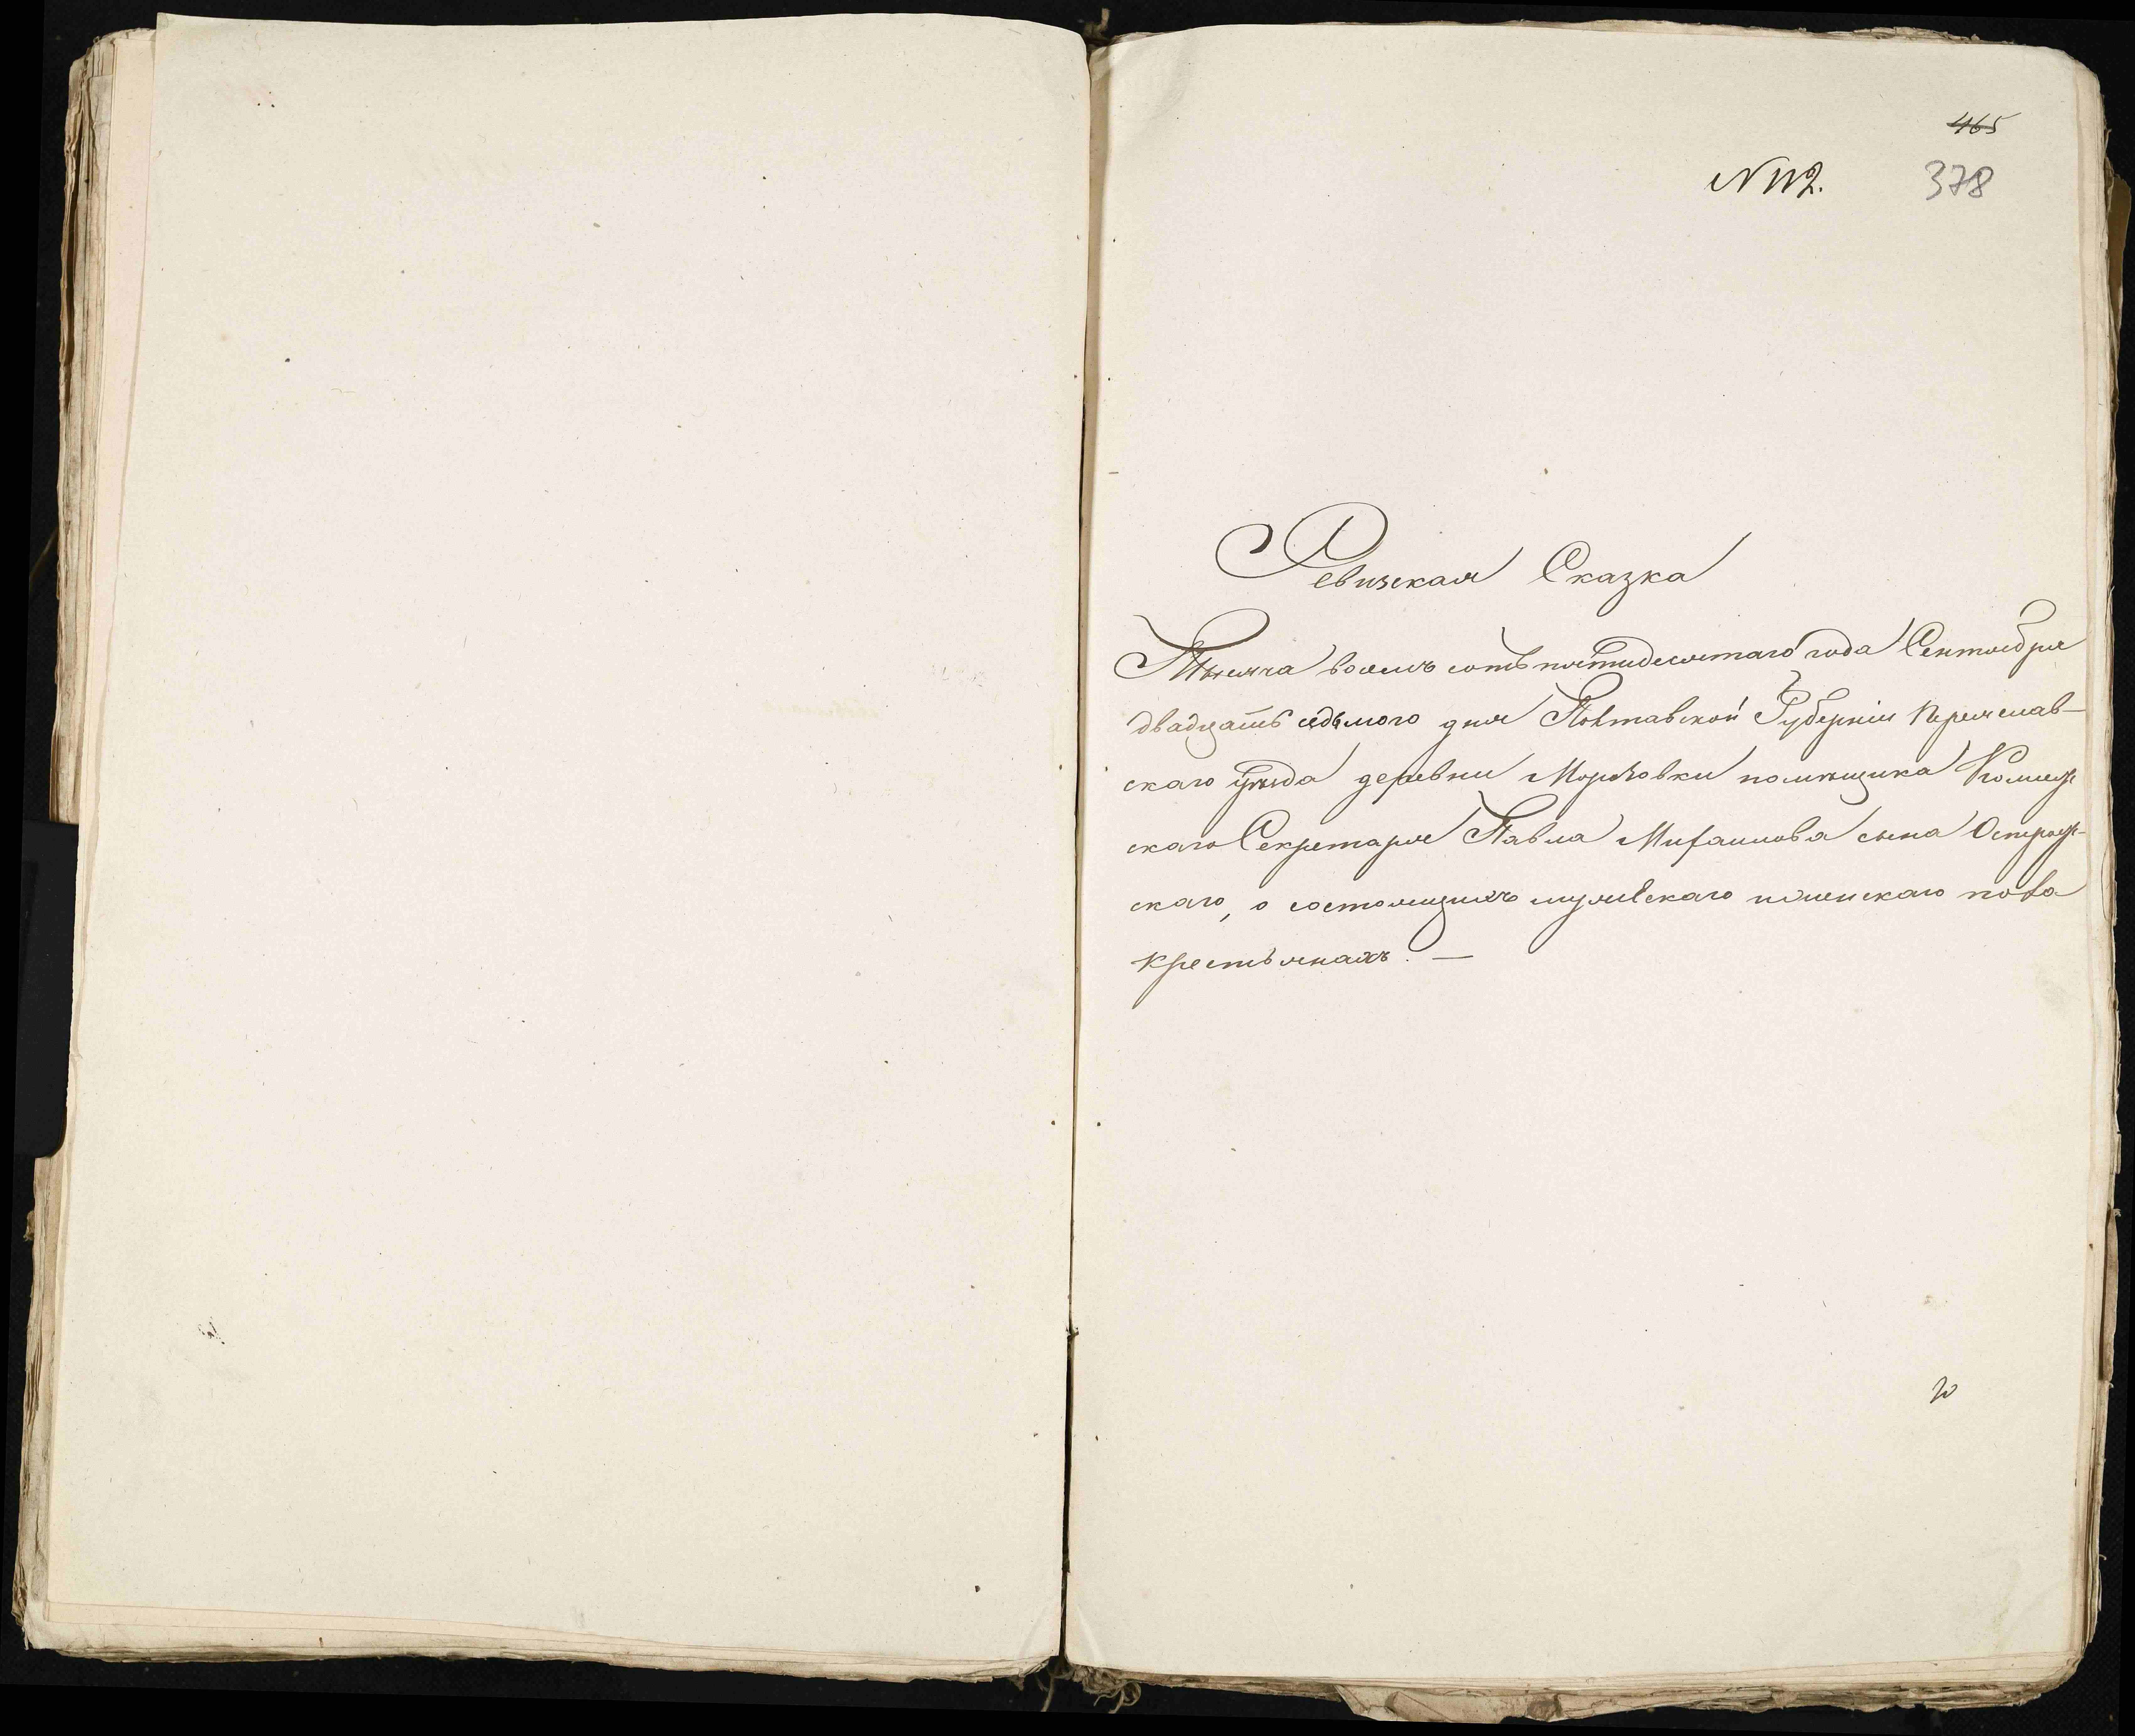 465
N 112. 378
Ревизская Сказка
Тысяча восемь сотъ пятидесятаго года Сентября
двадцать седьмого дня Полтавской Губерніи Переяслав-
скаго уѣзда деревни помѣщика
скаго Секретаря Павла Михаилова сына
скаго, о состоящихъ мужескаго и женскаго пола
крестьянахъ. —